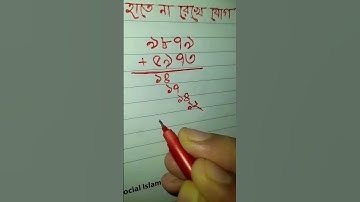 হাতে না রেখে যোগ
৯৮৭৯
+ ৫৯৭৩
১৪
১৭
১৪
১২
ocial Islam